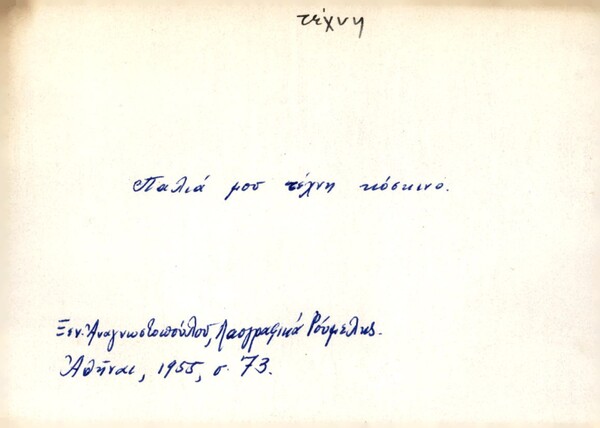 τέχνη
Παλιά μου τέχνη κόσκινο.
Ξεν. Ἀναγνωστοπούλου, Λαογραφικά Ρούμελης.
Ἀθῆναι, 1955, σ. 73.